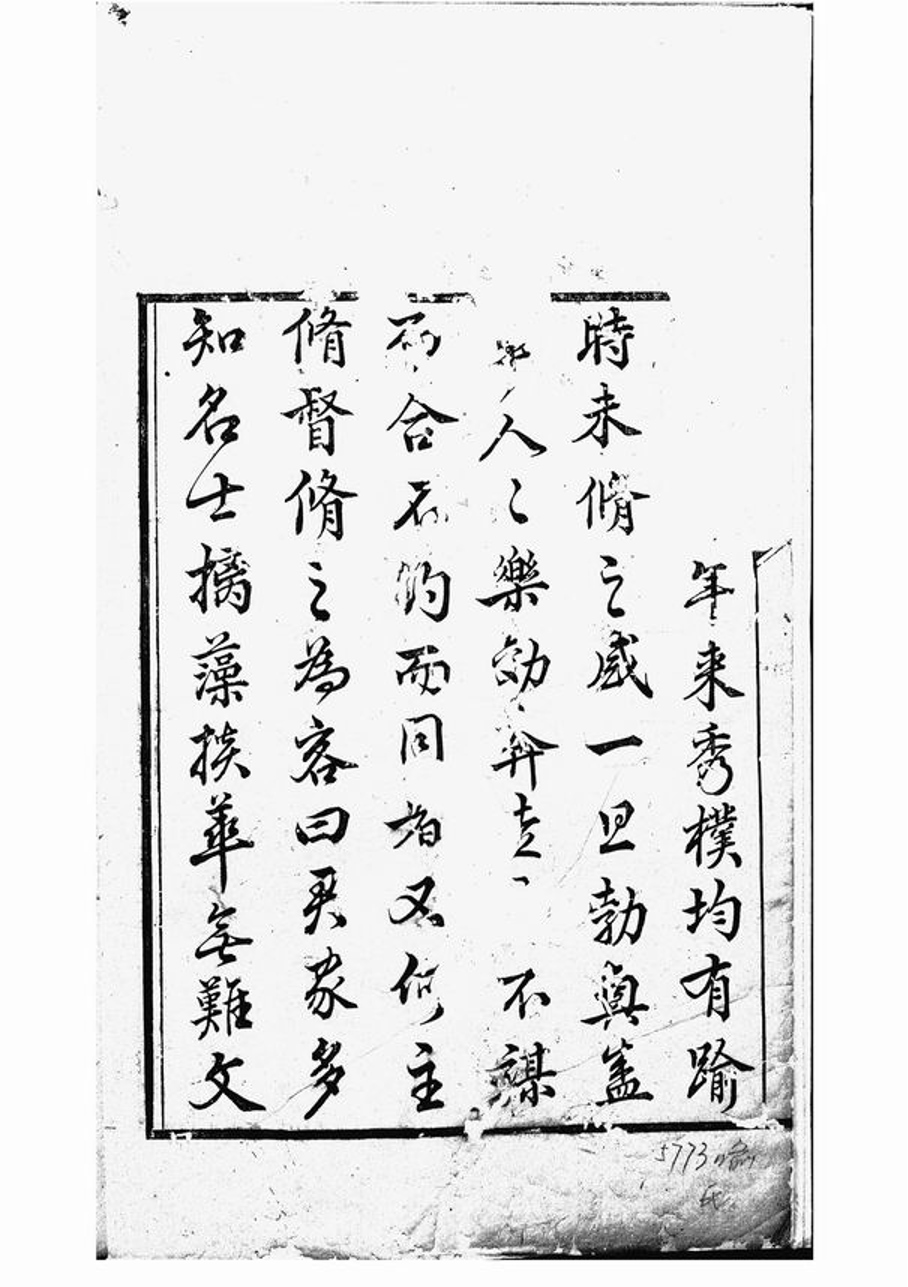 年来秀樸均有踰
時未脩之感一旦勃興蓋
人〻樂効奔走 不謀
而合不約而同者又何主
脩督脩之為客曰吾家多
知名士摛藻掞華無難文
5773